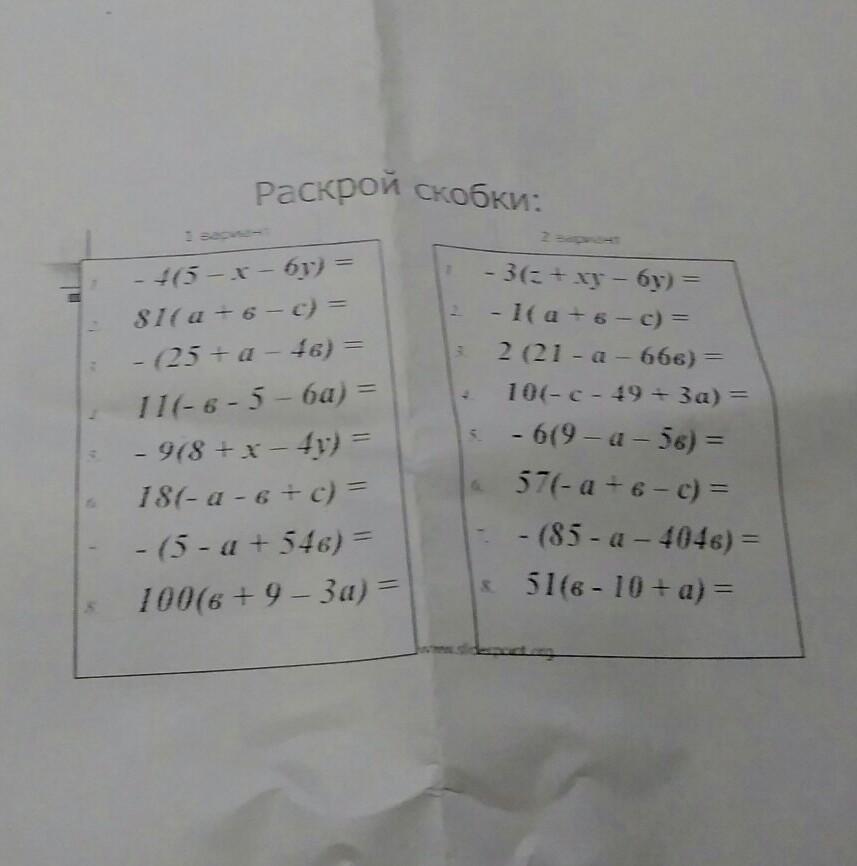 Раскрой скобки:
1 вариант
1. - 4(5 – х – 6у) =
2. 81( а + в – с) =
3. - (25 + а – 4в) =
4. 11(- в - 5 – 6а) =
5. - 9(8 + х – 4у) =
6. 18(- а - в + с) =
7. - (5 - а + 54в) =
8. 100(в + 9 – 3а) =
2 вариант
1. - 3(z + ху – 6у) =
2. - 1( а + в – с) =
3. 2 (21 - а – 66в) =
4. 10(- с - 49 + 3а) =
5. - 6(9 – а – 5в) =
6. 57(- а + в – с) =
7. - (85 - а – 404в) =
8. 51(в - 10 + а) =
www.sliderpoint.org